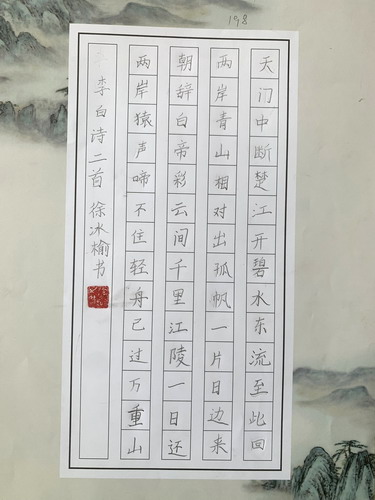 198
天门中断楚江开碧水东流至此回
两岸青山相对出孤帆一片日边来
朝辞白帝彩云间千里江陵一日还
两岸猿声啼不住轻舟已过万重山
李白诗二首 徐冰榆书